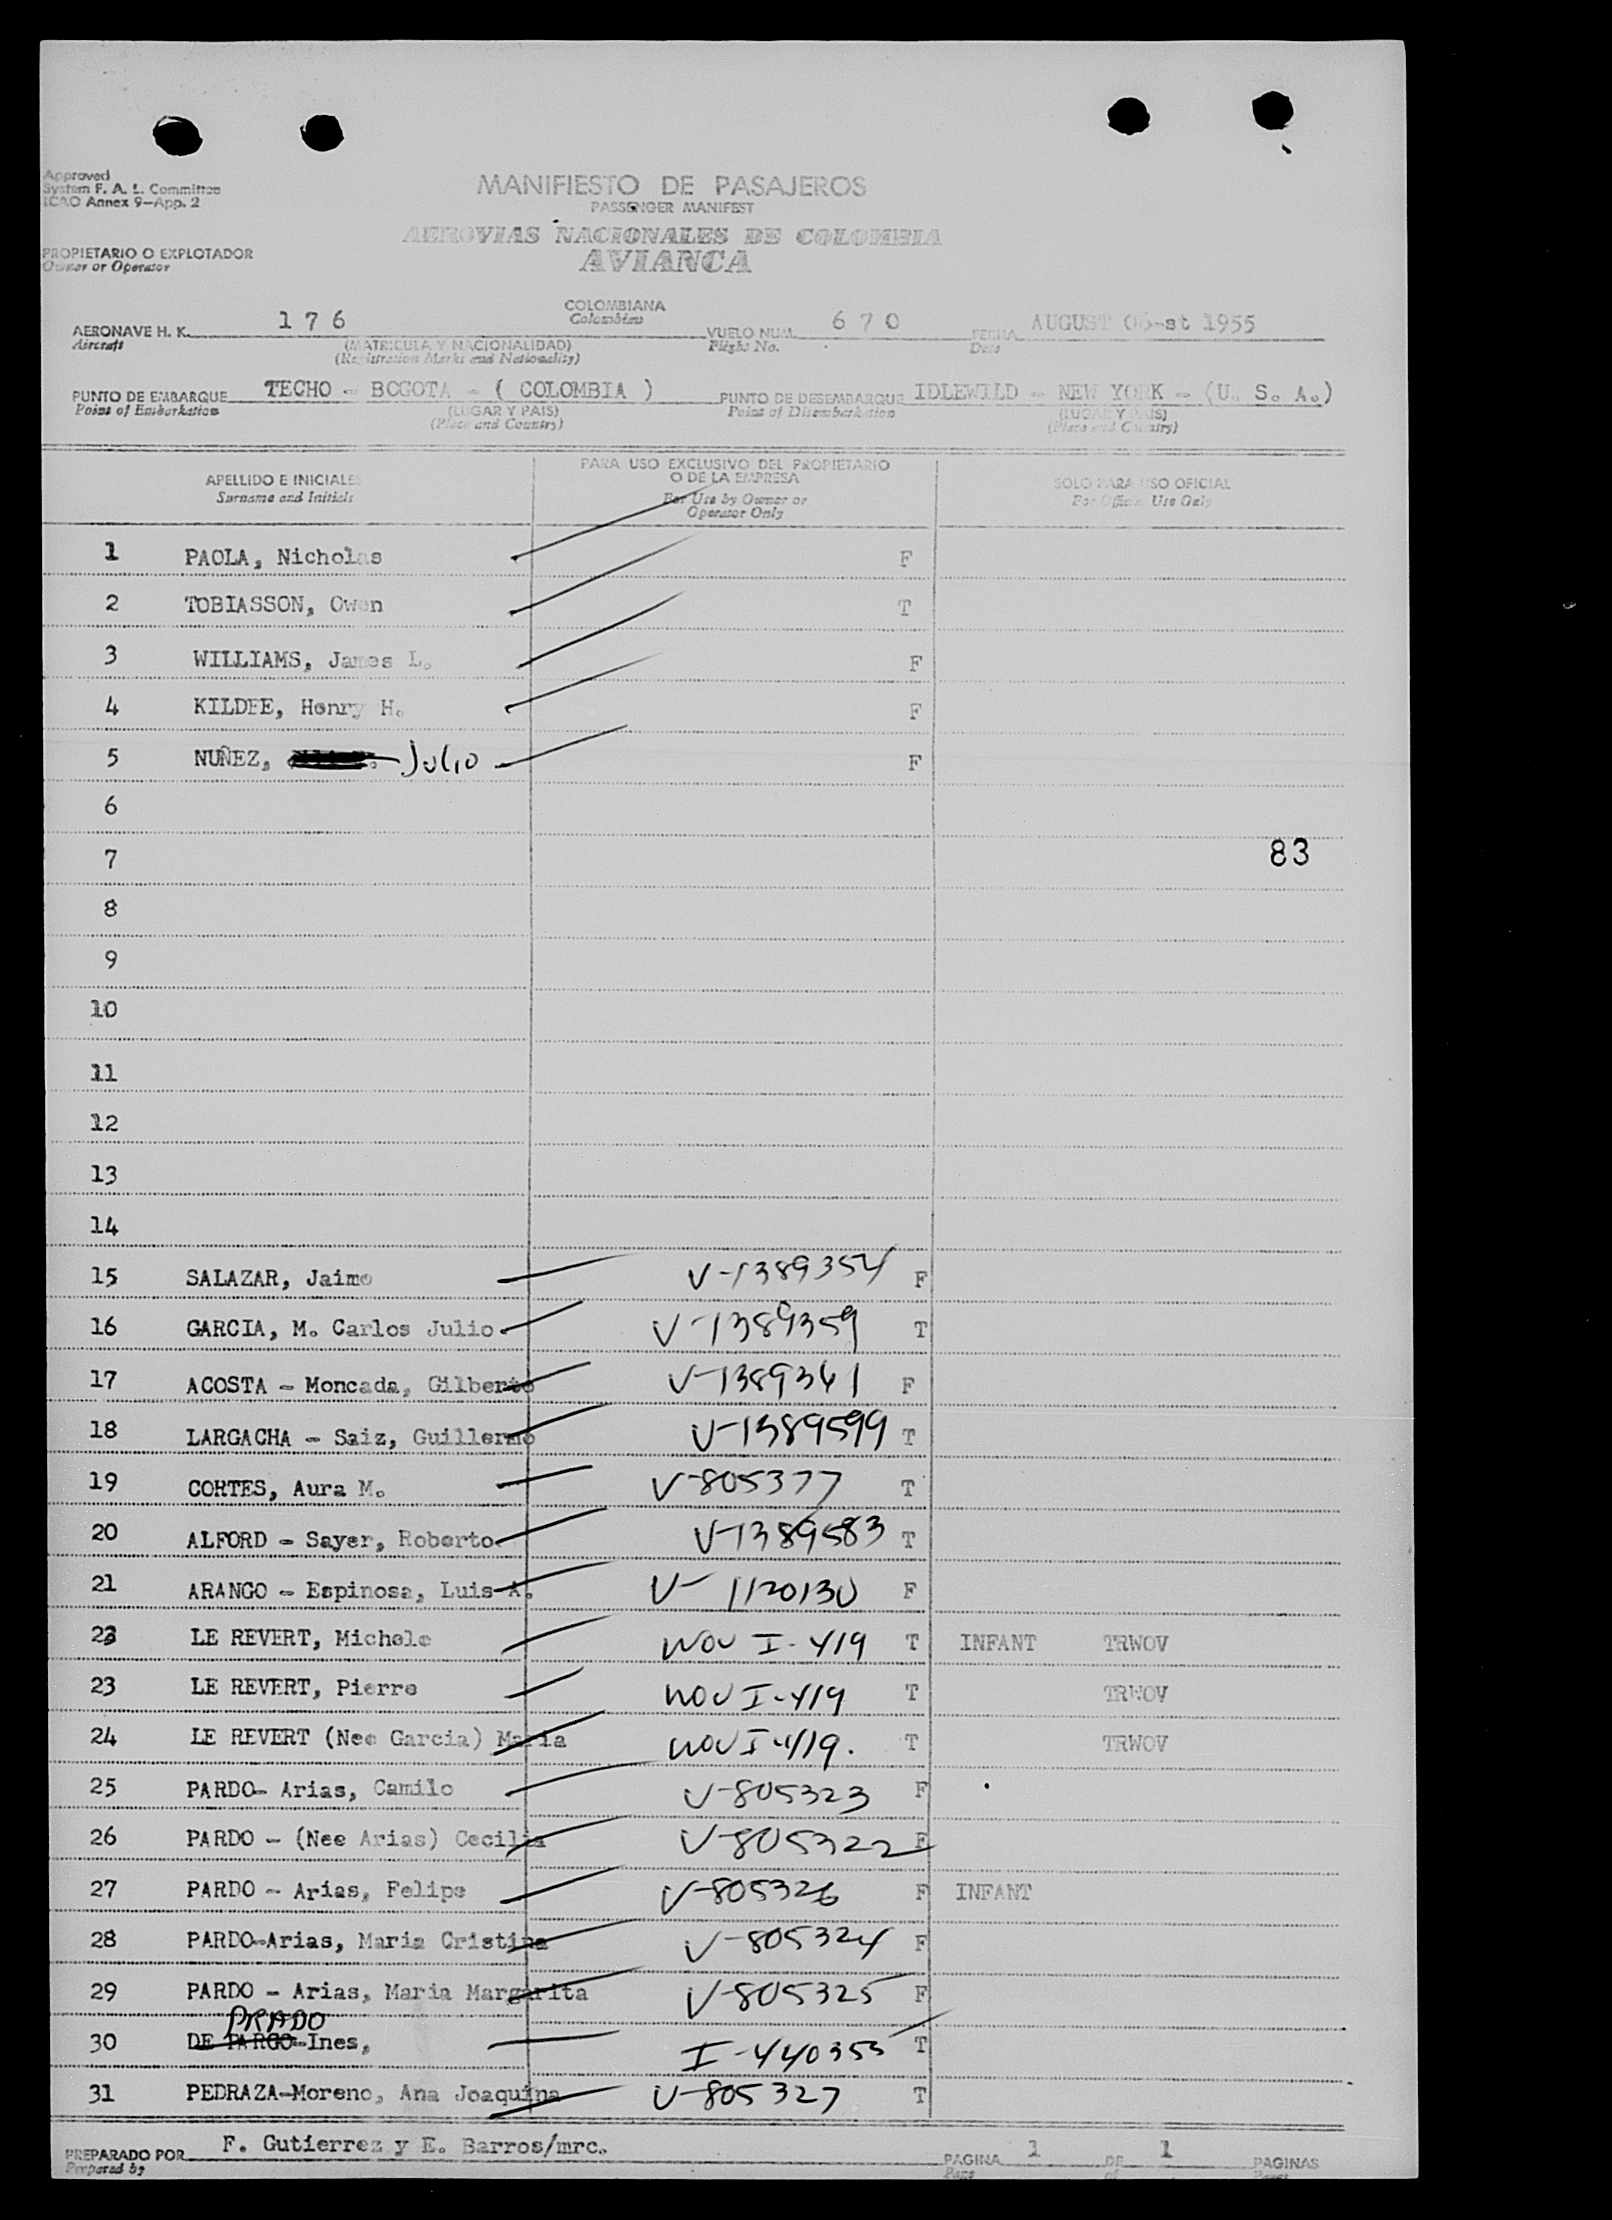 Approved
System F. A. L. Committee
ICAO Annex 9-App. 2
MANIFIESTO DE PASAJEROS
PASSENGER MANIFEST
AEROVIAS NACIONALES DE COLOMBIA
AVIANCA
PROPIETARIO O EXPLOTADOR
Owner or Operator
COLOMBIANA
Colombian
AERONAVE H. K. 176 VUELO NUM. 670 FECHA AUGUST 06-st 1955
Aircraft (MATRICULA Y NACIONALIDAD) Flight No. Date
(Registration Marks and Nationality)
PUNTO DE EMBARQUE TECHO - BOGOTA - ( COLOMBIA ) PUNTO DE DESEMBARQUE IDLEWILD - NEW YORK - (U. S. A.)
Point of Embarkation (LUGAR Y PAIS) Point of Disembarkation (LUGAR Y PAIS)
(Place and Country) (Place and Country)
APELLIDO E INICIALES PARA USO EXCLUSIVO DEL PROPIETARIO O DE LA EMPRESA SOLO PARA USO OFICIAL
Surname and Initials For Use by Owner or Operator Only For Official Use Only
1 PAOLA, Nicholas F
2 TOBIASSON, Owen T
3 WILLIAMS, James L. F
4 KILDEE, Henry H. F
5 NUÑEZ, Julio F
6
7 83
8
9
10
11
12
13
14
15 SALAZAR, Jaime V-1389354 F
16 GARCIA, M. Carlos Julio V-1389359 T
17 ACOSTA - Moncada, Gilberto V-1389361 F
18 LARGACHA - Saiz, Guillermo V-1389599 T
19 CORTES, Aura M. V-805377 T
20 ALFORD - Sayer, Roberto V-1389583 T
21 ARANGO - Espinosa, Luis A. V-1120130 F
22 LE REVERT, Michele WOV I-419 T INFANT TRWOV
23 LE REVERT, Pierre WOV I-419 T TRWOV
24 LE REVERT (Nee Garcia) Maria WOV I-419. T TRWOV
25 PARDO- Arias, Camilo V-805323 F
26 PARDO - (Nee Arias) Cecilia V-805322 F
27 PARDO - Arias, Felipe V-805326 F INFANT
28 PARDO-Arias, Maria Cristina V-805324 F
29 PARDO - Arias, Maria Margarita V-805325 F
PRADO
30 DE PARGO-Ines, I-440355 T
31 PEDRAZA-Moreno, Ana Joaquina V-805327 T
PREPARADO POR F. Gutierrez y E. Barros/mrc. PAGINA 1 DE 1 PAGINAS
Prepared by Page of Pages